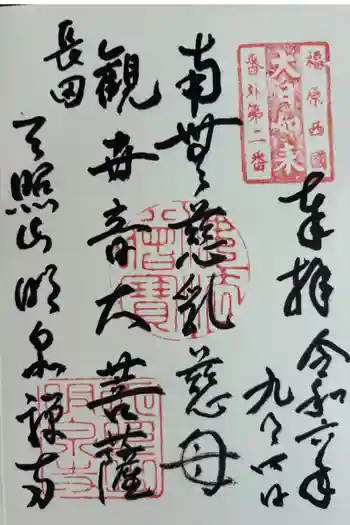 福原西國
大日如来
番外第二番
奉拝
令和六年
九月四日
南無慈乳慈母
観世音大菩薩
長田
天照山明泉禅寺